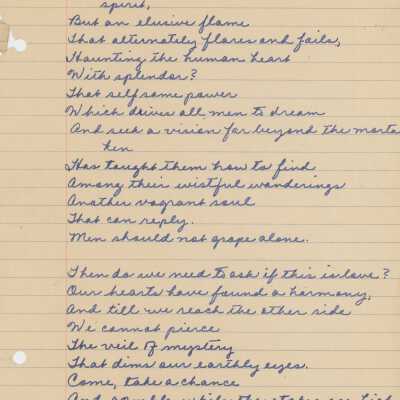 spirit,
But an elusive flame
That alternately flares and fails,
Haunting the human heart
With splendor?
That selfsame power
Which drives all men to dream
And seek a vision far beyond the morta
ken
Has taught them how to find
Among their wistful wanderings
Another vagrant soul
That can reply.
Men should not grope alone.
Then do we need to ask if this is love?
Our hearts have found a harmony,
And till we reach the other side
We cannot pierce
The veil of mystery
That dims our earthly eyes.
Come, take a chance
And gamble while the stakes are